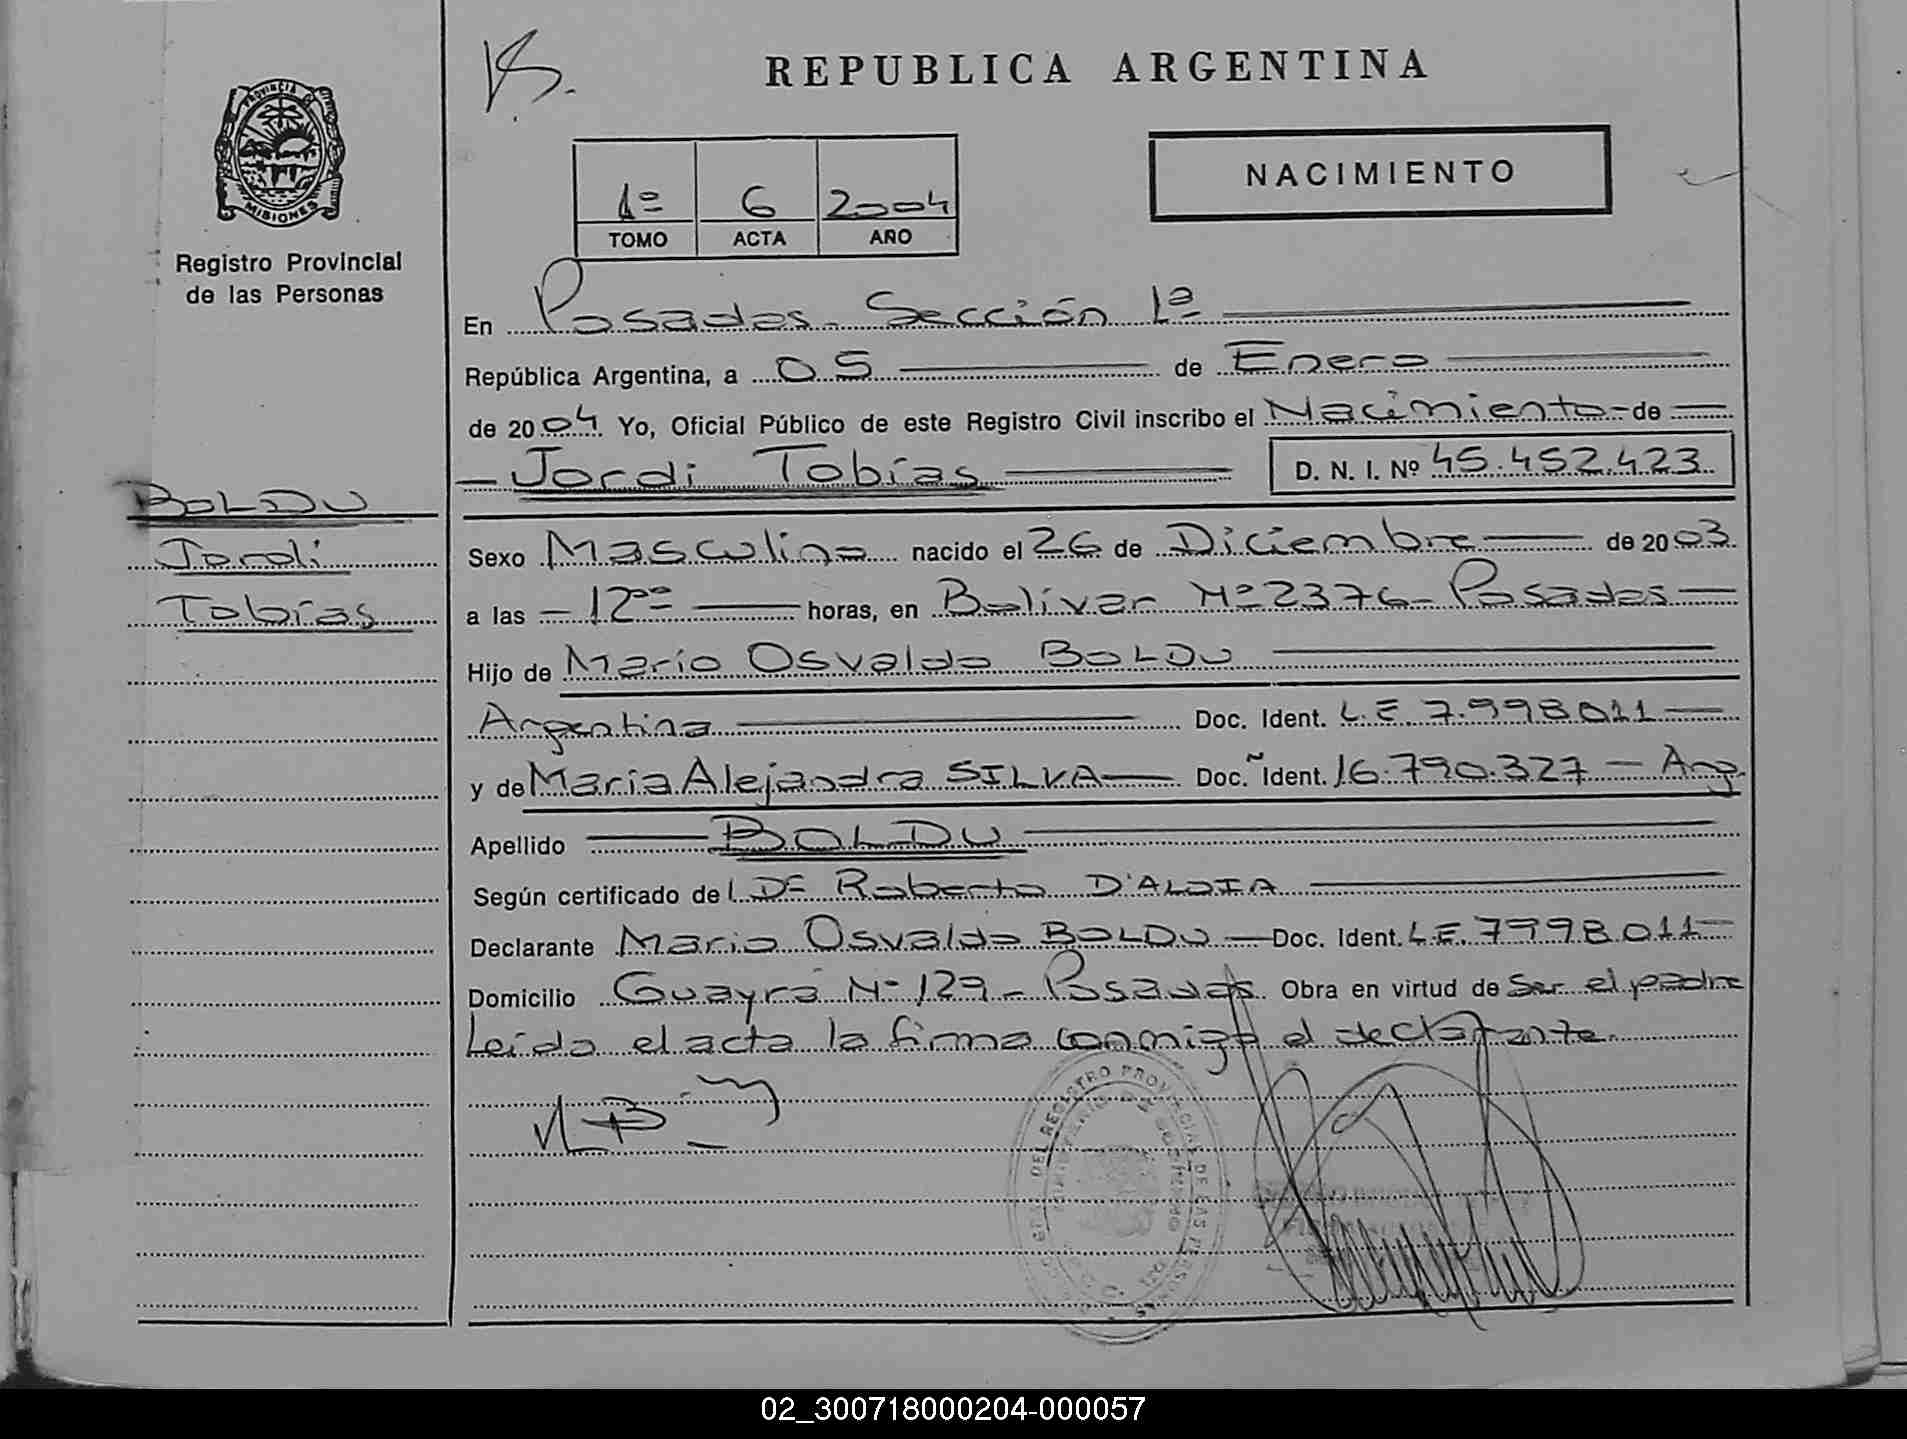 PROVINCIA DE
MISIONES
Registro Provincial
de las Personas
BOLDU
Jordi
Tobías
REPUBLICA ARGENTINA
NACIMIENTO
1º 6 2004
TOMO ACTA AÑO
En Posadas. Sección 1ª
República Argentina, a 05 de Enero
de 2004 Yo, Oficial Público de este Registro Civil inscribo el Nacimiento - de
Jordi Tobías D. N. I. Nº 45.452.423
Sexo Masculino nacido el 26 de Diciembre de 2003
a las 12ºº horas, en Bolivar Nº 2376 - Posadas
Hijo de Mario Osvaldo BOLDU
Argentina Doc. Ident. L.E 7.998011
y de Maria Alejandra SILVA Doc. Ident. 16.790.327 - Arg.
Apellido BOLDU
Según certificado del Dr Roberto D'ALOIA
Declarante Mario Osvaldo BOLDU Doc. Ident. L.E. 7998011
Domicilio Guayrá Nº 129 - Posadas Obra en virtud de Ser el padre
Leída el acta la firma conmigo el declarante
DEL REGISTRO PROVINCIAL DE LAS PERSONAS
MINISTERIO DE GOBIERNO
02_300718000204-000057